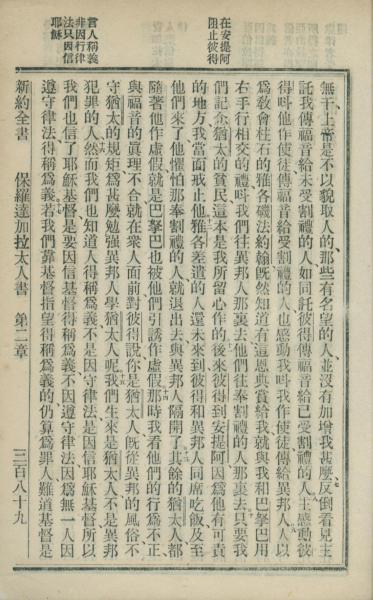 在安提阿
阻止彼得
言人稱義
非因行律
法只因信
耶穌
無干上帝是不以貌取人的那些有名望的人並沒有加增我甚麼反倒看見主
託我傳福音給未受割禮的人如同託彼得傳福音給已受割禮的人主感動彼
得呌他作使徒傳福音給受割禮的人也感動我呌我作使徒傳給異邦人人以
爲敎會柱石的雅各磯法約翰旣然知道有這恩典賞給我就與我和巴拏巴用
右手行相交的禮呌我們往異邦人那裏去他們往奉割禮的人那裏去只要我
們記念猶太的貧民這本是我所留心作的後來彼得到安提阿因爲他有可責
的地方我當面戒止他雅各差遣的人還未來到彼得和異邦人同席吃飯及至
他們來了他懼怕那奉割禮的人就退出去與異邦人隔開了其餘的猶太人都
隨著他作虛假就是巴拏巴也被他們引誘作虛假那時我看他們的行爲不正
與福音的眞理不合就在衆人面前對彼得說你是猶太人旣從異邦的風俗不
守猶太的規矩爲甚麼勉强異邦人學猶太人呢我們生來是猶太人不是異邦
犯罪的人然而我們也知道人得稱爲義不是因守律法是因信耶穌基督所以
我們也信了耶穌基督是要因信基督得稱爲義不因遵守律法因爲無一人因
遵守律法得稱爲義若我們靠基督指望得稱爲義的仍算爲罪人難道基督是
新約全書 保羅達加拉太人書 第二章 三百八十九